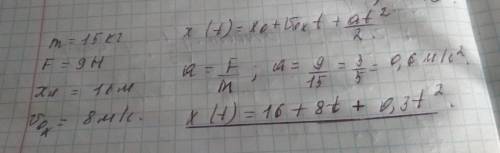 m = 15 кг
F = 9 Н
x₀ = 16 м
v₀ₓ = 8 м/с.
x(t) = x₀ + v₀ₓt + at²/2.
a = F/m ; a = 9/15 = 3/5 = 0,6 м/с².
x(t) = 16 + 8t + 0,3t².